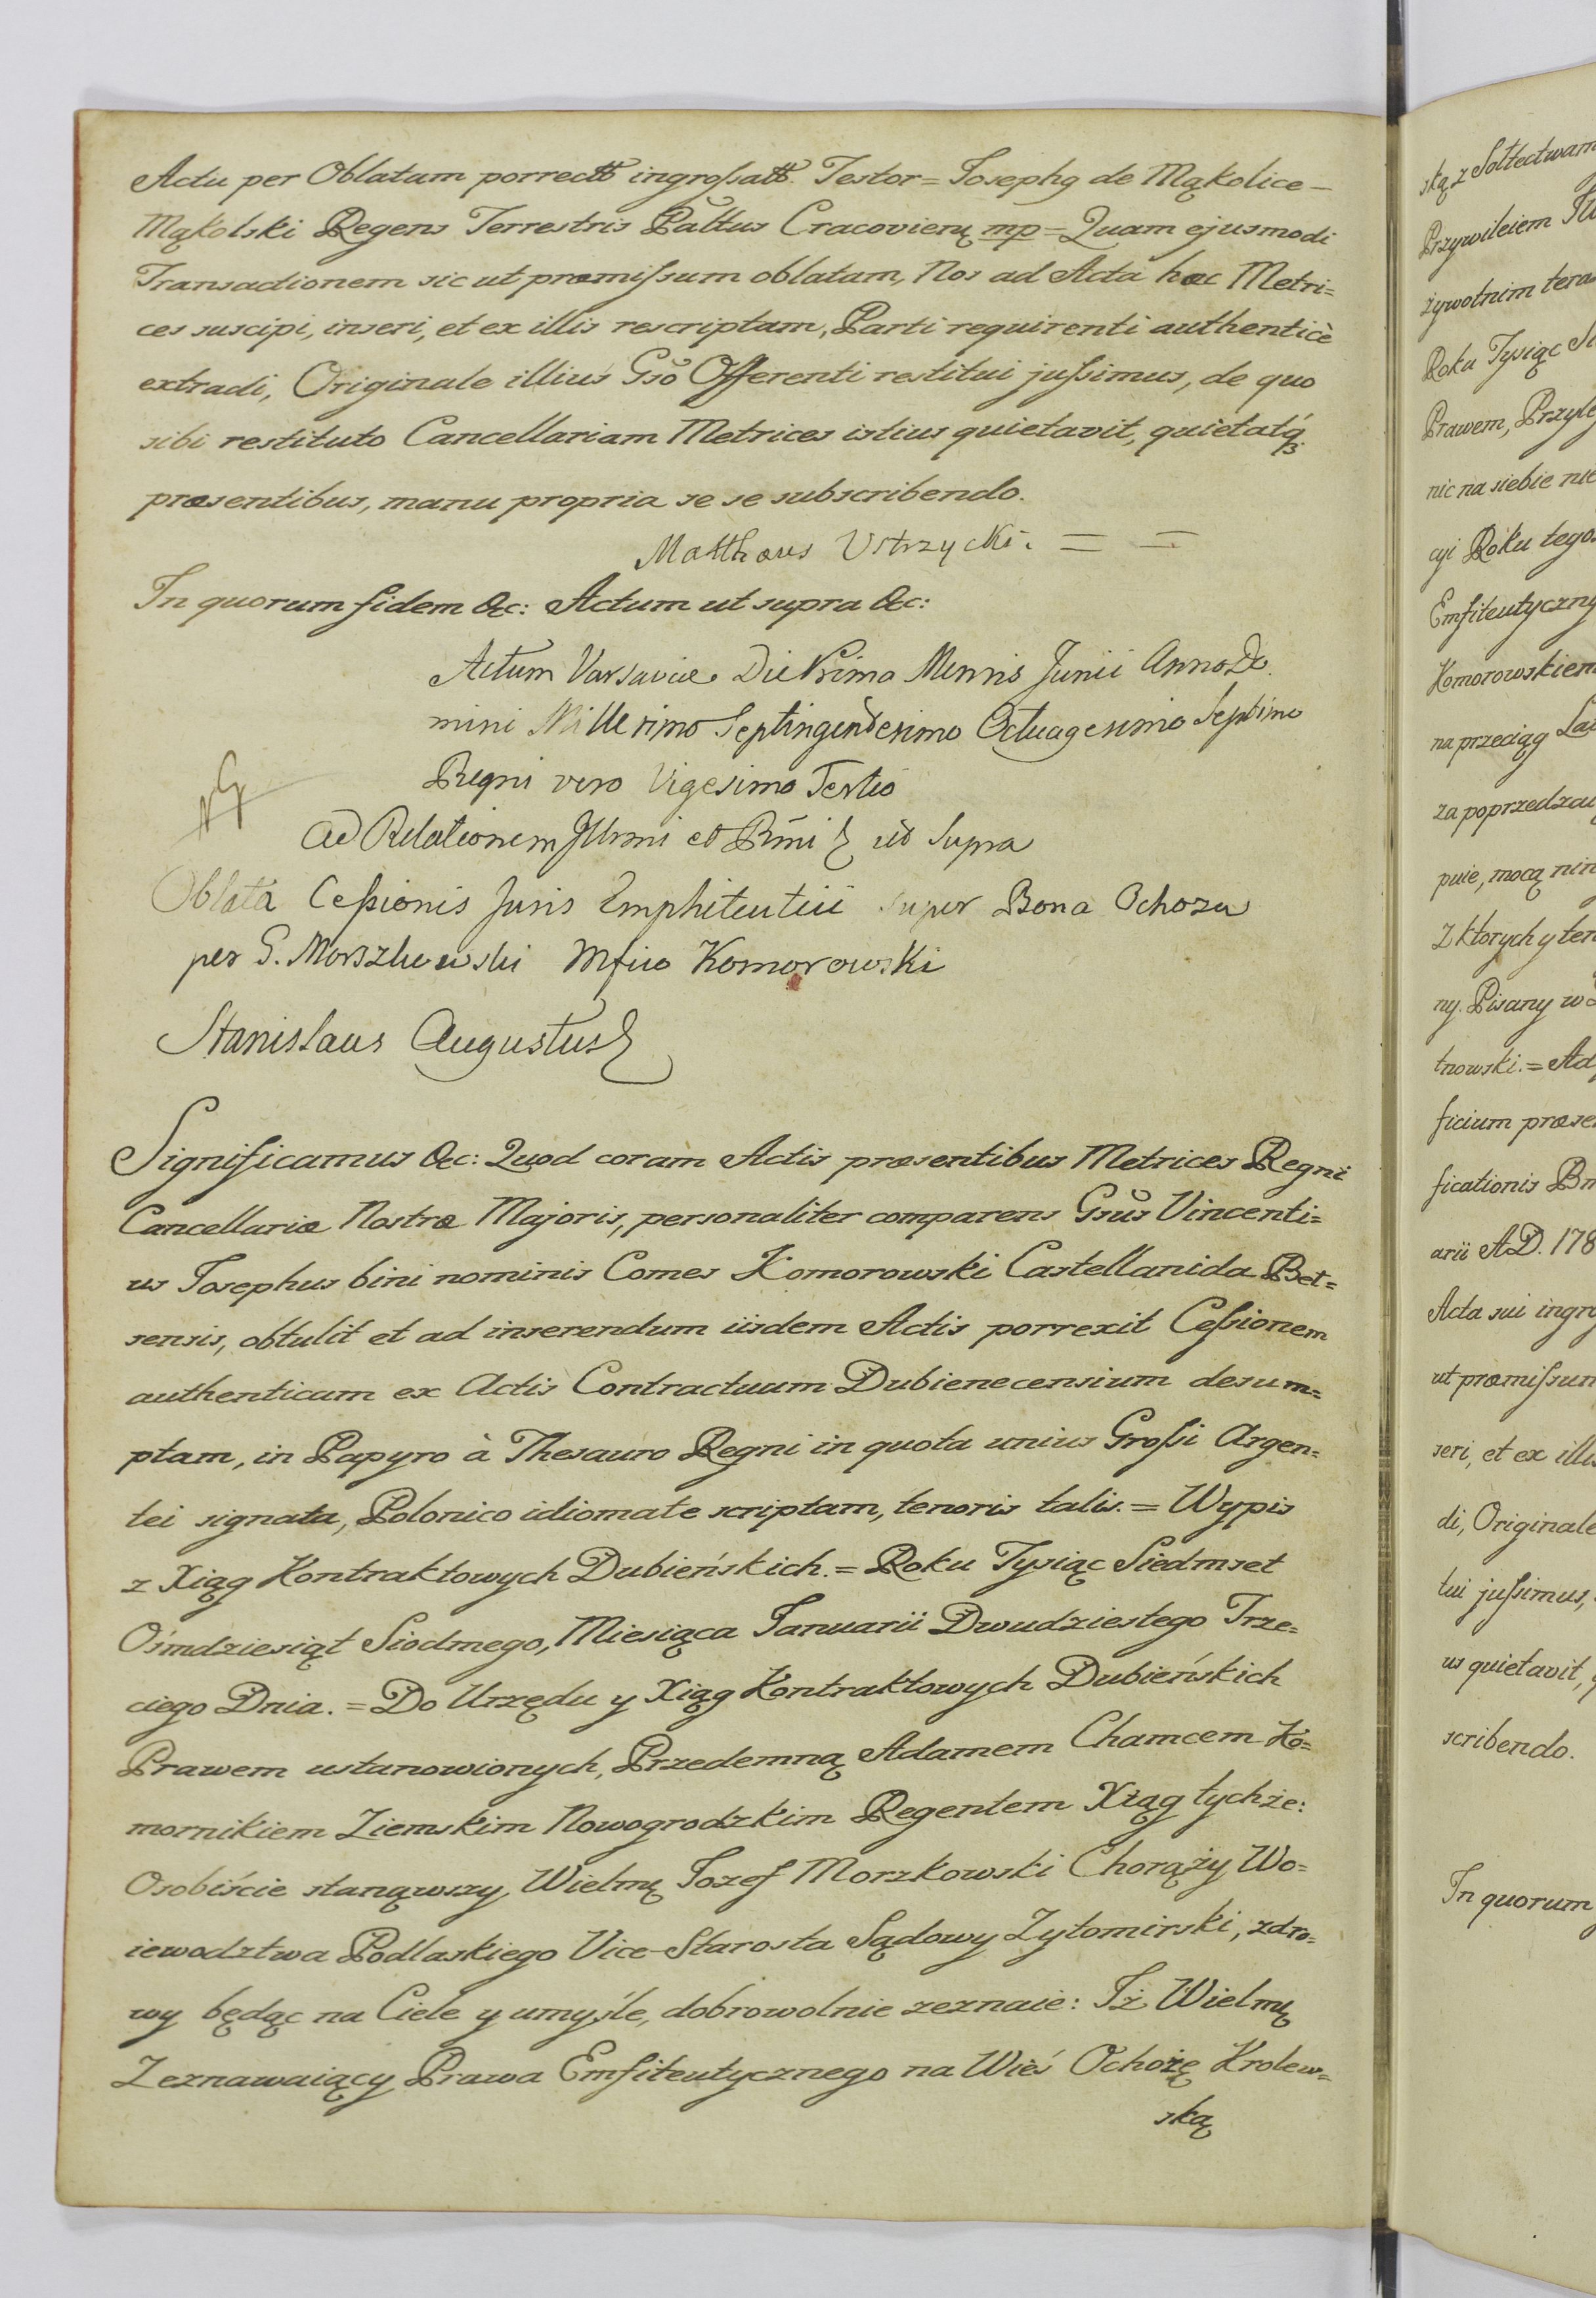 Actu per Oblatam porrectt ingroſsatt. Testor = Josephg de Mąkolice —
Mąkolski Regens Terrestris Pałłus Cracovienę mp = Quam ejusmodi
Transactionem sic ut præmiſsum oblatam, Nos ad Acta hæc Metri=
ces suscipi, inseri, et ex illis rescriptam, Parti requirenti authenticè
extradi, Originale illius Gsõ Offerenti restitui juſsimus, de quo
sibi restituto Cancellariam Metrices istius quietavit, quietatq;
præsentibus, manu propria se se subscribendo.
Matthæus Ustrzycki. = =
In quorum fidem &c: Actum ut supra &c:
Actum Varsaviæ Die Prima Mensis Junii Anno Do
mini Millesimo Septingentesimo Octuagesimo Septimo
Regni vero Vigesimo Tertio
Ad Relationem Illmi et Rmi ut supra
Oblata Ceſsionis Juris Emphiteutici super Bona Ochoza
per G. Morszkowski Mfico Komorowski
Stanislaus Augustus
Significamus &c: Quod coram Actis præsentibus Metrices Regni
Cancellariæ Nostræ Majoris, personaliter comparens Gsus Vincenti=
us Josephus bini nominis Comes Komorowski Castellanida Bet=
sensis, obtulit et ad inserendum iisdem Actis porrexit Ceſsionem
authenticam ex Actis Contractuum Dubienecensium desum=
ptam, in Papyro à Thesauro Regni in quota unius Groſsi Argen=
tei signata, Polonico idiomate scriptam, tenoris talis. = Wypis
z Xiąg Kontraktowych Dubieńskich. = Roku Tysiąc Siedmset
Ośmdziesiąt Siodmego, Miesiąca Januarii Dwudziestego Trze=
ciego Dnia. = Do Urzędu y Xiąg Kontraktowych Dubieńskich
Prawem ustanowionych, Przedemną Adamem Chamcem Ko=
mornikiem Ziemskim Nowogrodzkim Regentem Xiąg tychże:
Osobiście stanąwszy, Wielmę Jozef Morzkowski Chorąży Wo=
iewodztwa Podlaskiego Vice-Starosta Sądowy Zytomirski, zdro=
wy będąc na Ciele y umyśle, dobrowolnie zeznaie: Iż Wielmę
Zeznawaiący Prawa Emfiteutycznego na Wieś Ochożę Krolew=
ską
ską z Sołtectwam
Przywileiem
żywotnim tera
Roku Tysiąc
Prawem, Przyle
nic na siebie nie
cyi Roku tego
Emfiteutyczny
Komorowskiem
na przeciąg
za poprzedza
puie, mocą nin
Z ktorych y ter
ny. Pisany w
tnowski. = Ad
ficium præse
ficationis
arii A.D. 178
Acta sui ingro
ut præmiſsum
seri, et ex illis
di, Originale
tui juſsimus,
us quietavit,
scribendo.
In quorum